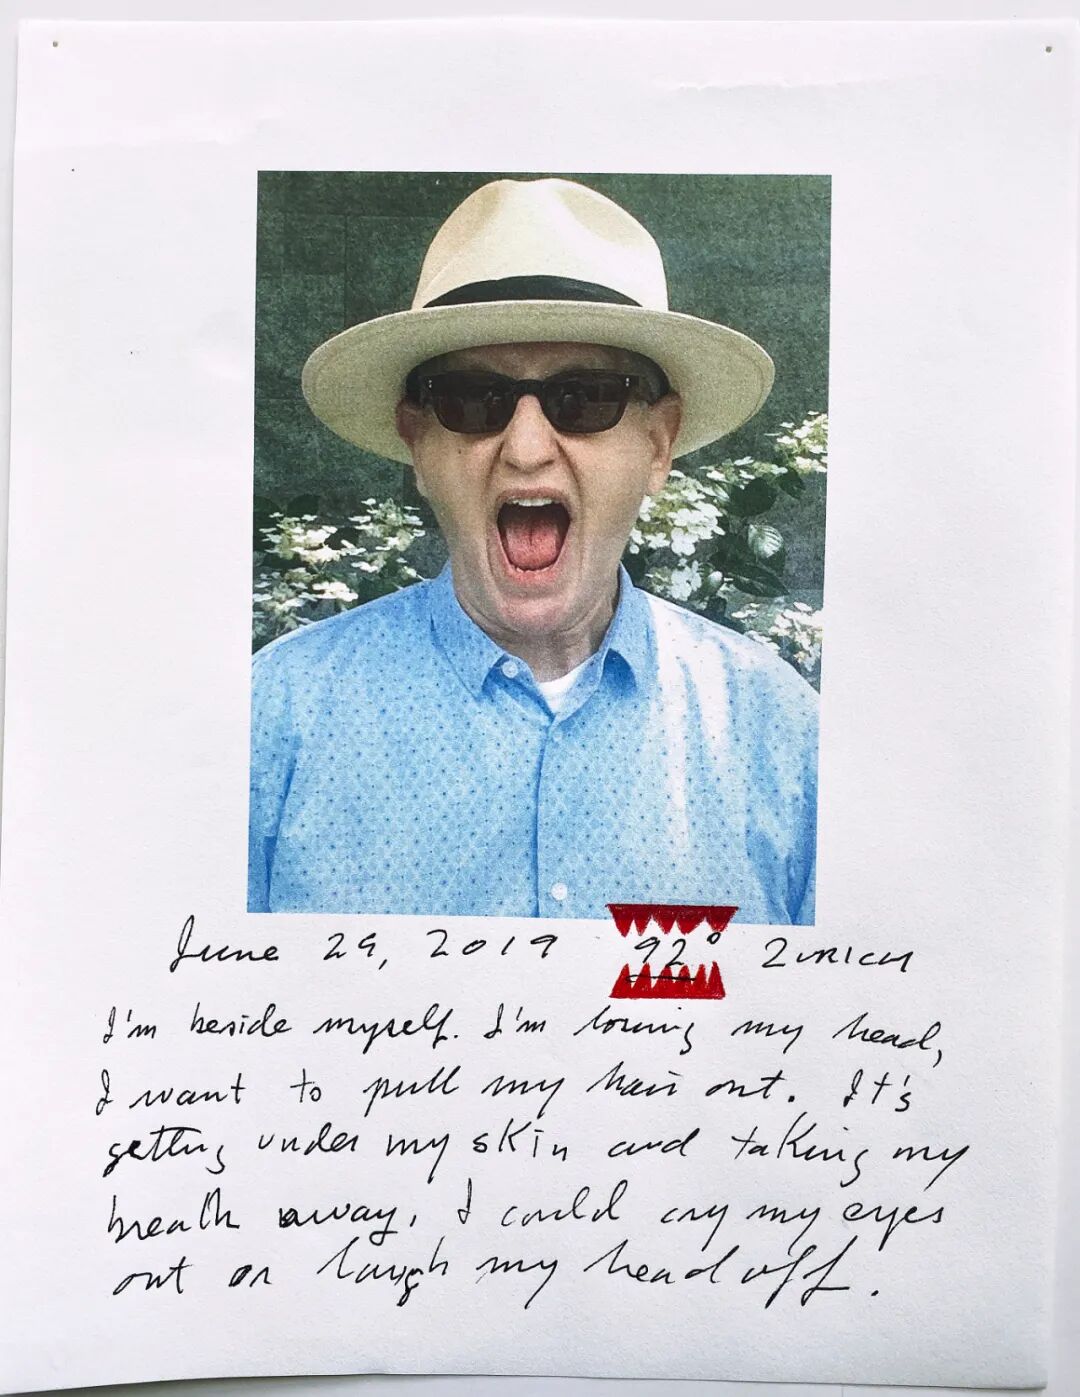 June 29, 2019 92° ZURICH
I'm beside myself. I'm losing my head,
I want to pull my hair out. It's
getting under my skin and taking my
breath away, I could cry my eyes
out or laugh my head off.